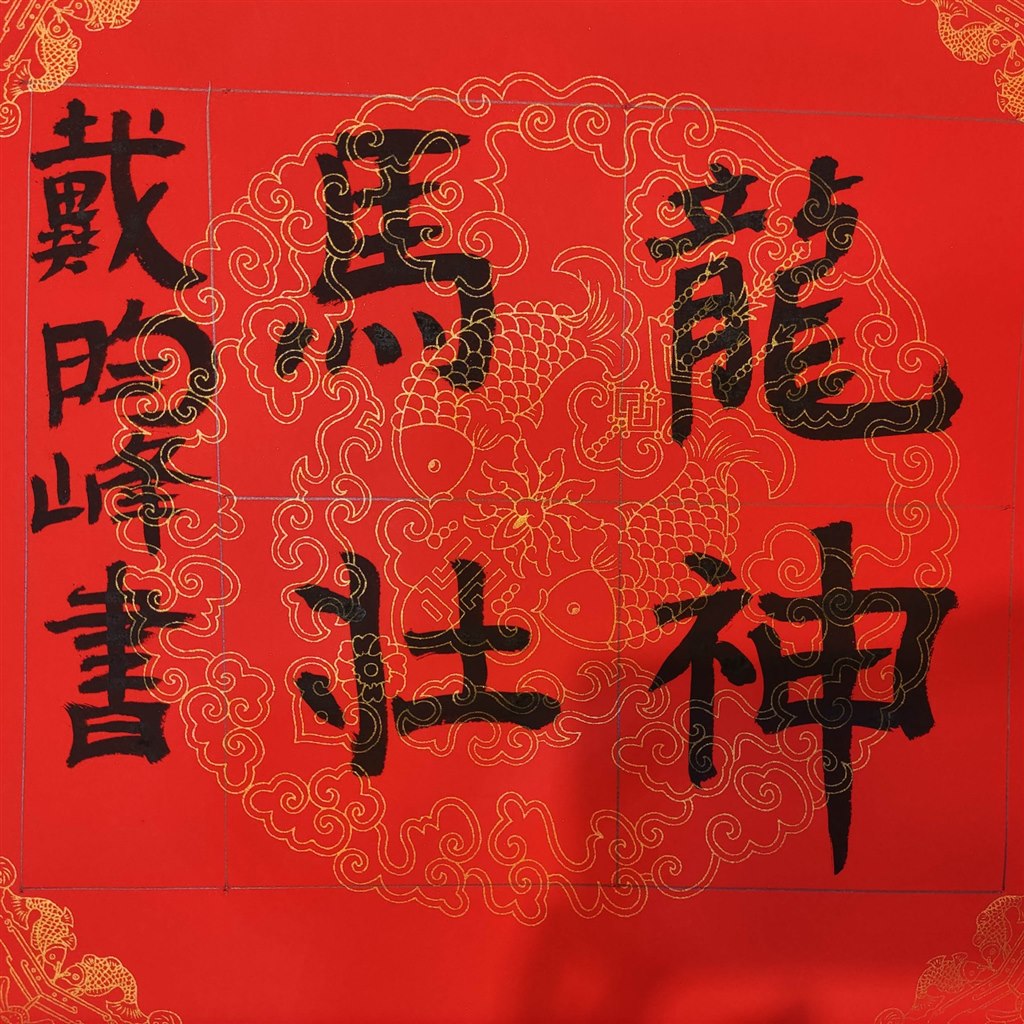 龍神
馬壯
戴昀峰書